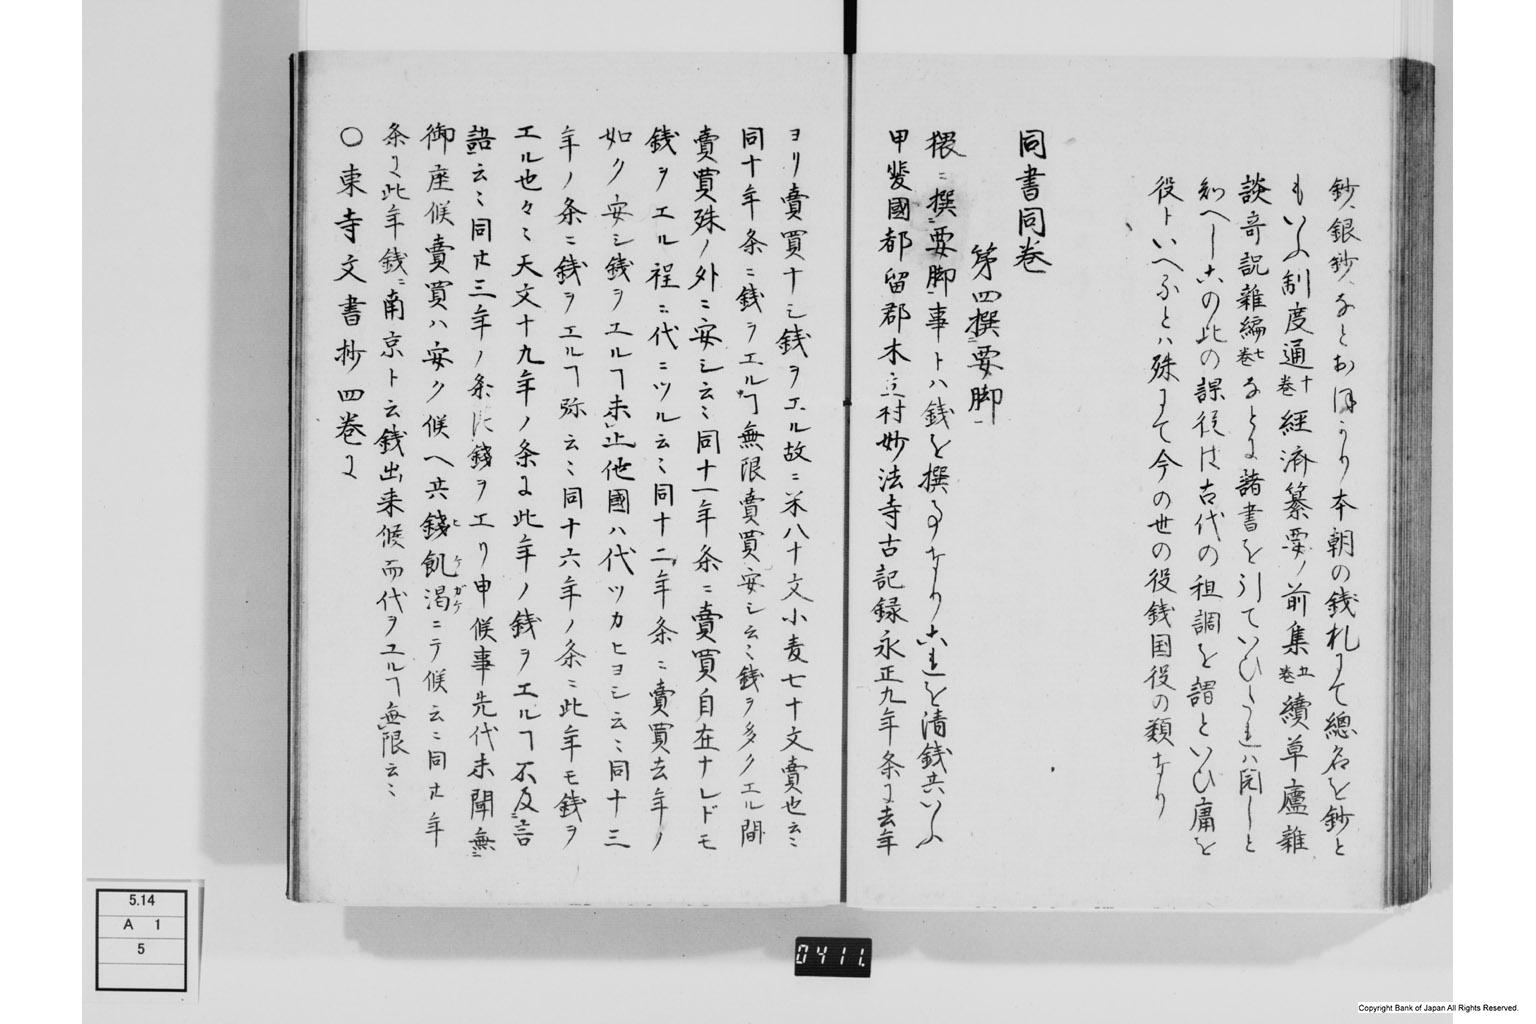 鈔銀鈔なとおほかり本朝の銭札にて總名を鈔と
もいふ制度通十巻経済纂要ノ前集五巻續草廬雜
談奇説雜編七巻なとに諸書を引ていひたれハ閲しと
知へしこの此の課役は古代の祖調を謂といひ庸を
役トいへるとハ殊にて今の世の役銭国役の類なり
同書同巻
第四撰二要脚一
猥ニ撰二要脚一事トハ銭を撰る事なりこれを清銭共いふ
甲斐國都留郡木立村妙法寺古記録永正九年条に去年
ヨリ賣買ナシ銭ヲエル故ニ米八十文小麦七十文賣也云ミ
同十年条ニ銭ヲエルヿ無限賣買安シ云ミ銭ヲ多クエル間
賣買殊ノ外ニ安シ云ミ同十一年条ニ賣買自在ナレドモ
銭ヲエル程ニ代ニツル云ミ同十二年条ニ賣買去年ノ
如ク安シ銭ヲエルヿ未止他國ハ代ツカヒヨシ云ミ同十三
年ノ条ニ銭ヲエルヿ弥云ミ同十六年ノ条ニ此年モ銭ヲ
エル也々ミ天文十九年ノ条に此年ノ銭ヲエルヿ不及言
語云ミ同廿三年ノ条に錢ヲエリ申候事先代未聞無ニ
御座候賣買ハ安ク候へ共錢飢渇ヒケガケニテ候云ミ同廿年
条に此年銭ニ南京ト云銭出来候而代ヲエルヿ無限云ミ
〇東寺文書抄四巻に
5.14
A 1
5
0411.
Copyright Bank of Japan All Rights Reserved.